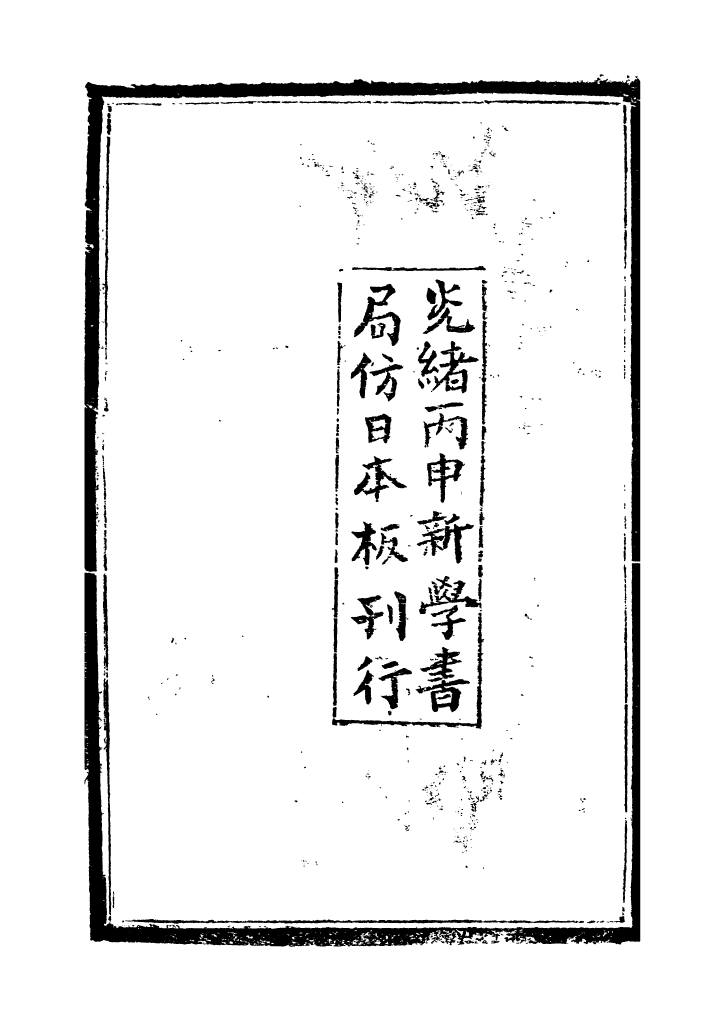 光緒丙申新學書
局仿日本板刊行